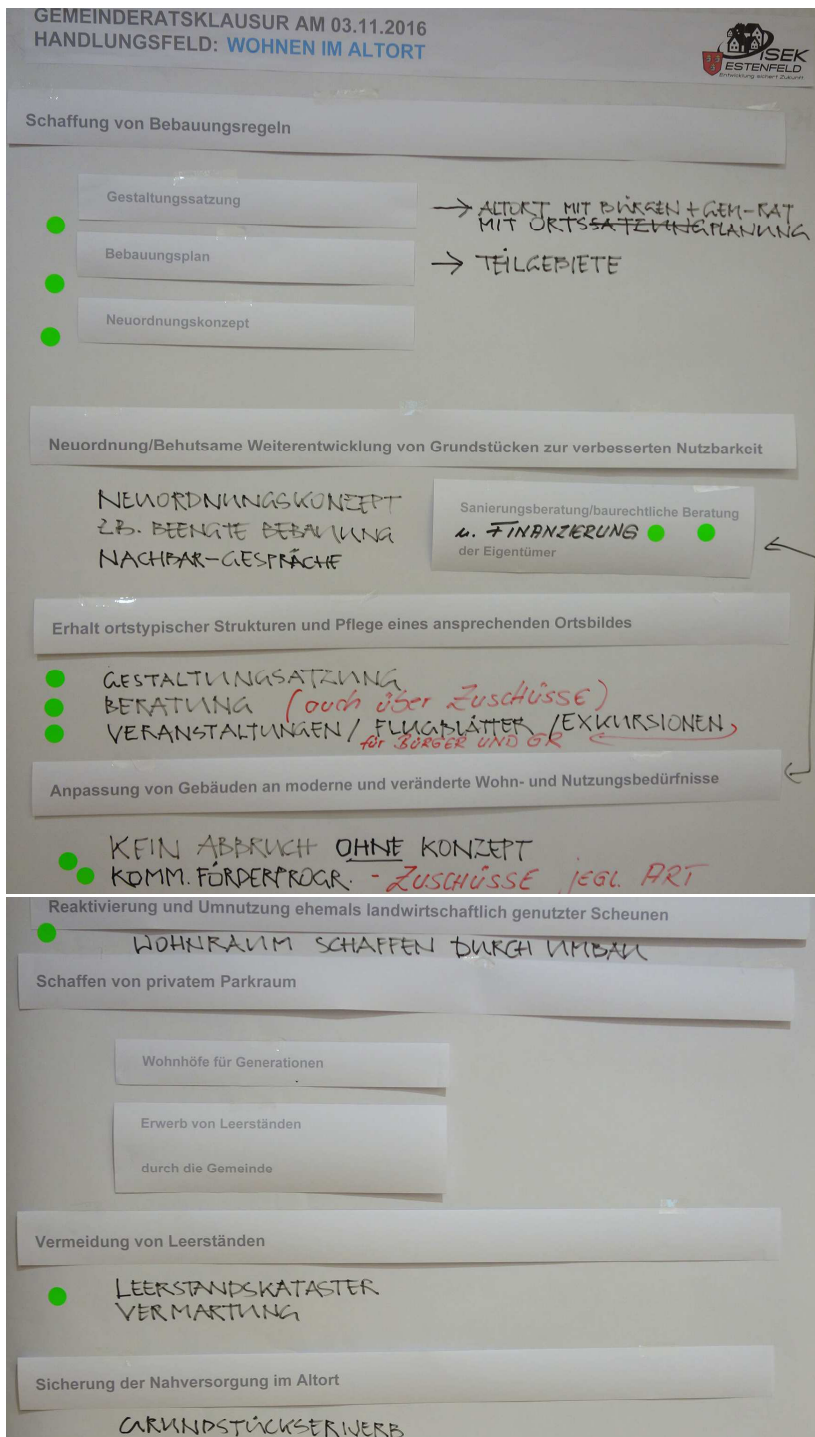 GEMEINDERATSKLAUSUR AM 03.11.2016
HANDLUNGSFELD: WOHNEN IM ALTORT
ISEK
ESTENFELD
Entwicklung sichert Zukunft
Schaffung von Bebauungsregeln
Gestaltungssatzung
→ ALTORT MIT BÜRGEN + GEM-RAT
MIT ORTSSATZUNGPLANUNG
Bebauungsplan
→ TEILGEBIETE
Neuordnungskonzept
Neuordnung/Behutsame Weiterentwicklung von Grundstücken zur verbesserten Nutzbarkeit
NEUORDNUNGSKONZEPT
Z.B. BEENGTE BEBAUUNG
NACHBAR-GESPRÄCHE
Sanierungsberatung/baurechtliche Beratung
u. FINANZIERUNG
der Eigentümer
Erhalt ortstypischer Strukturen und Pflege eines ansprechenden Ortsbildes
GESTALTUNGSATZUNG
BERATUNG (auch über ZUSCHÜSSE)
VERANSTALTUNGEN / FLUGBLÄTTER / EXKURSIONEN
für BÜRGER UND GR
Anpassung von Gebäuden an moderne und veränderte Wohn- und Nutzungsbedürfnisse
KEIN ABBRUCH OHNE KONZEPT
KOMM. FÖRDERPROGR. - ZUSCHÜSSE JEGL. ART
Reaktivierung und Umnutzung ehemals landwirtschaftlich genutzter Scheunen
WOHNRAUM SCHAFFEN DURCH UMBAU
Schaffen von privatem Parkraum
Wohnhöfe für Generationen
Erwerb von Leerständen
durch die Gemeinde
Vermeidung von Leerständen
LEERSTANDSKATASTER
VERMARTUNG
Sicherung der Nahversorgung im Altort
GRUNDSTÜCKSERWERB